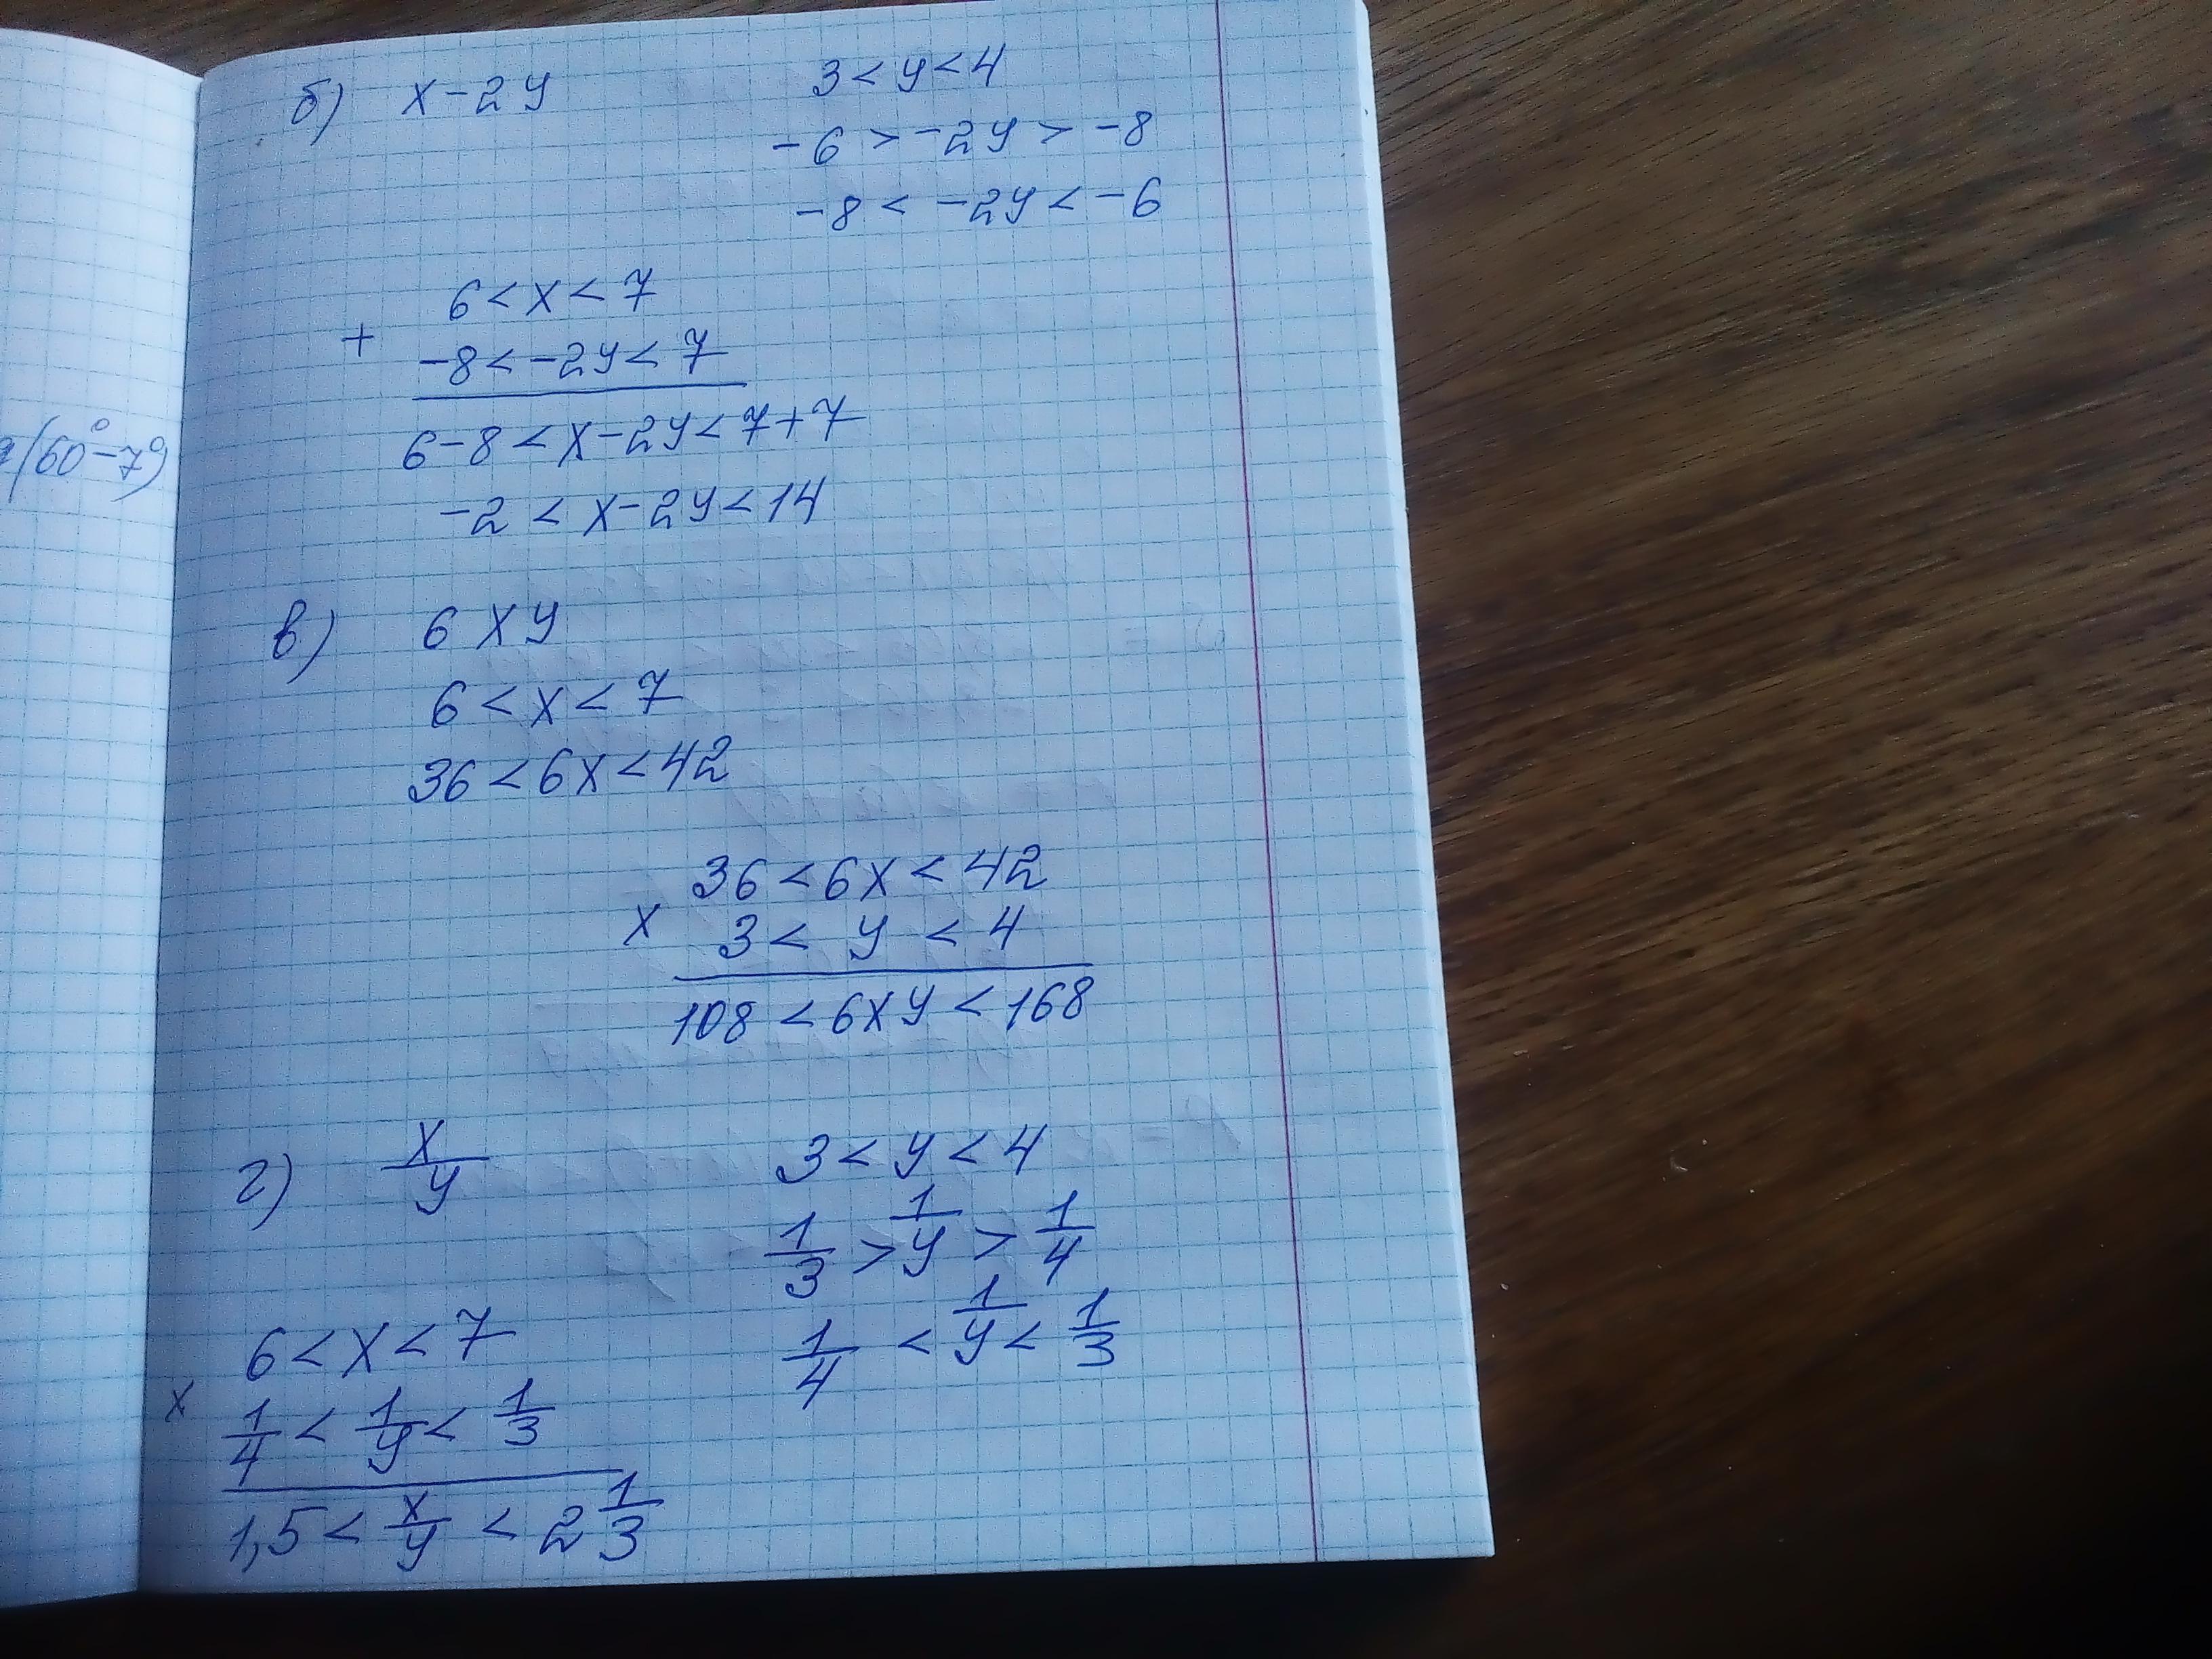 б) x-2y 3<y<4
-6 > -2y > -8
-8 < -2y < -6
6<x<7
+
-8<-2y<7
6-8<x-2y<7+7
-2<x-2y<14
(60°-7°)
в) 6xy
6<x<7
36<6x<42
36<6x<42
x
3<y<4
108<6xy<168
г) x/y 3<y<4
1/3 > 1/y > 1/4
1/4 < 1/y < 1/3
6<x<7
x
1/4 < 1/y < 1/3
1,5 < x/y < 2 1/3